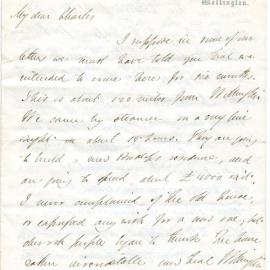 Wellington.
My dear Charles
I suppose in some of our
letters we must have told you that we
intended to come here for six months.
This is about 120 miles from Wellington.
We came by steamer on a very fine
night in about 12 hours. They are going
to build a new Bishop's residence, and
are going to spend about £4000 on it.
I never complained of the old house,
or expressed any wish for a new one, but
other people began to think the house
rather discreditable and that Wellington